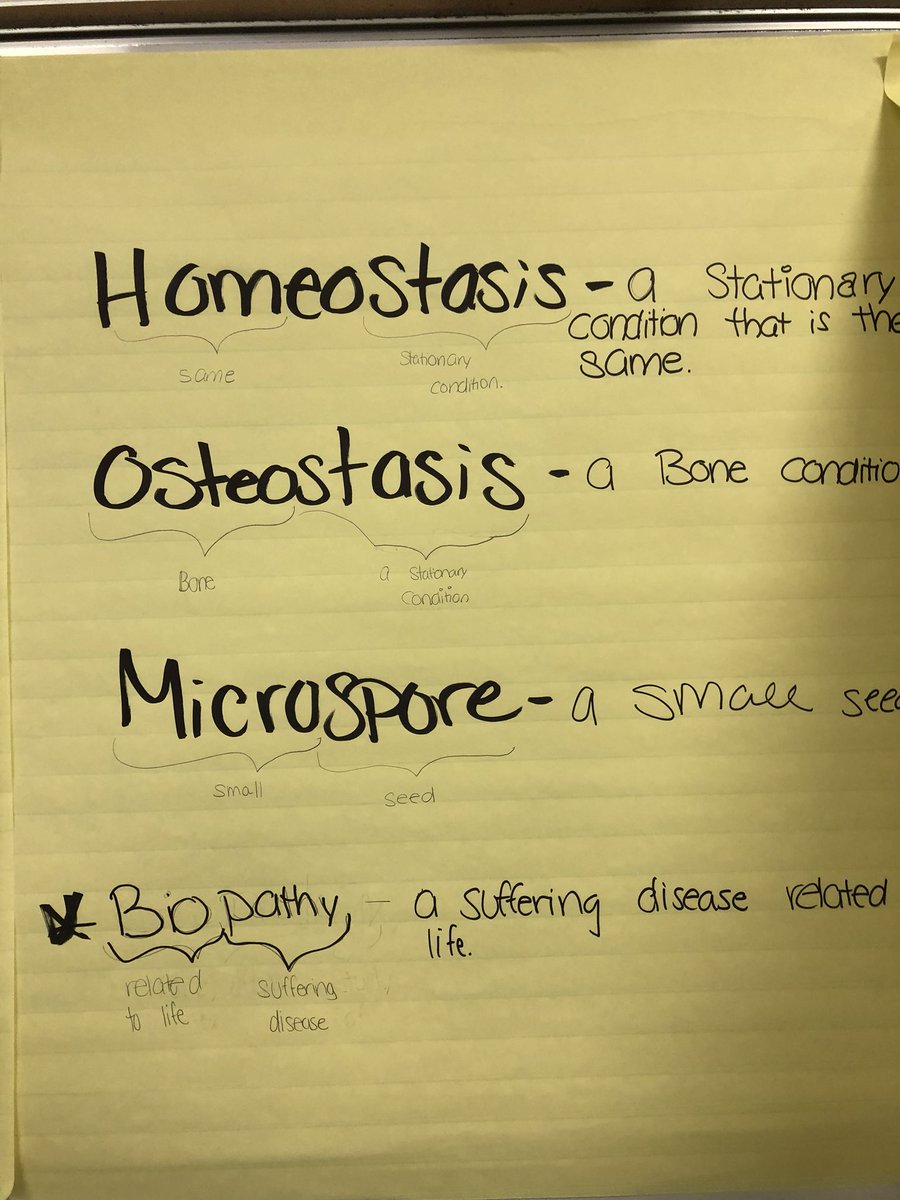 Homeostasis - a Stationary
condition that is the
same.
same
Stationary
condition.
Osteostasis - a Bone conditio
Bone
a Stationary
Condition
Microspore - a small seed
small
seed
Biopathy - a suffering disease related
life.
related
to life
suffering
disease